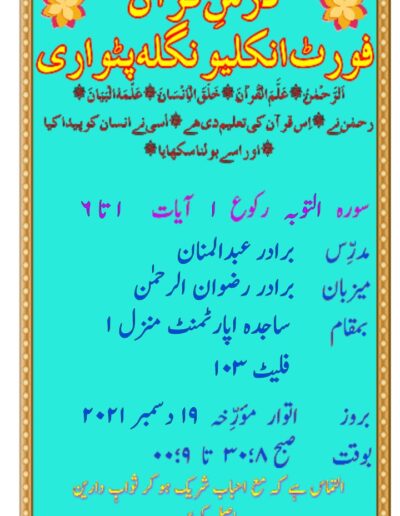 درسِ قرآن
فورٹ انکلیو نگلہ پٹواری
اَلرَّحْمٰنُ ۞ عَلَّمَ الْقُرْاٰنَ ۞ خَلَقَ الْاِنْسَانَ ۞ عَلَّمَهُ الْبَیَانَ ۞
رحمٰن نے ۞ اِس قرآن کی تعلیم دی ہے ۞ اُسی نے انسان کو پیدا کیا
۞ اور اسے بولنا سکھایا ۞
سورہ التوبہ رکوع ۱ آیات ۱ تا ۶
مدرّس برادر عبدالمنان
میزبان برادر رضوان الرحمٰن
بمقام ساجدہ اپارٹمنٹ منزل ۱
فلیٹ ۱۰۳
بروز اتوار مؤرّخہ ۱۹ دسمبر ۲۰۲۱
بوقت صبح ۸:۳۰ تا ۹:۰۰
التماس ہے کہ مع احباب شریک ہو کر ثوابِ دارین